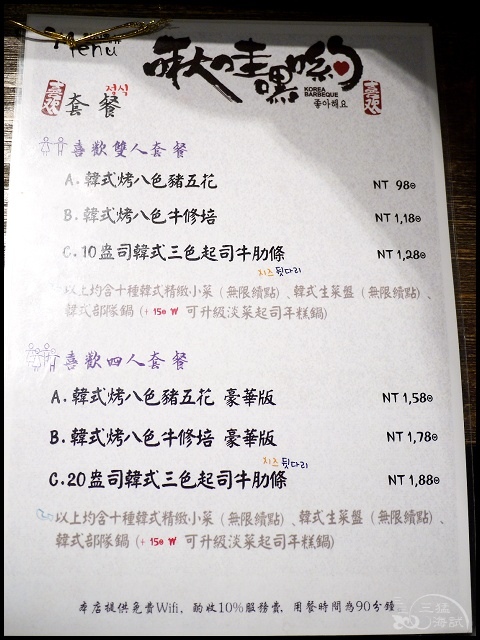 Menu
啾哇嘿喲
KOREA
BARBEQUE
좋아해요
喜欢
정식
套餐
喜欢
喜歡雙人套餐
A. 韓式烤八色豬五花 NT 980
B. 韓式烤八色牛修培 NT 1,180
C. 10盎司韓式三色起司牛肋條 NT 1,280
치즈 뒷다리
以上均含十種韓式精緻小菜(無限續點)、韓式生菜盤(無限續點)、
韓式部隊鍋(+150 ₩ 可升級淡菜起司年糕鍋)
喜歡四人套餐
A. 韓式烤八色豬五花 豪華版 NT 1,580
B. 韓式烤八色牛修培 豪華版 NT 1,780
치즈 뒷다리
C. 20盎司韓式三色起司牛肋條 NT 1,880
以上均含十種韓式精緻小菜(無限續點)、韓式生菜盤(無限續點)、
韓式部隊鍋(+150 ₩ 可升級淡菜起司年糕鍋)
本店提供免費Wifi, 酌收10%服務費, 用餐時間為90分鐘
三猛
海試